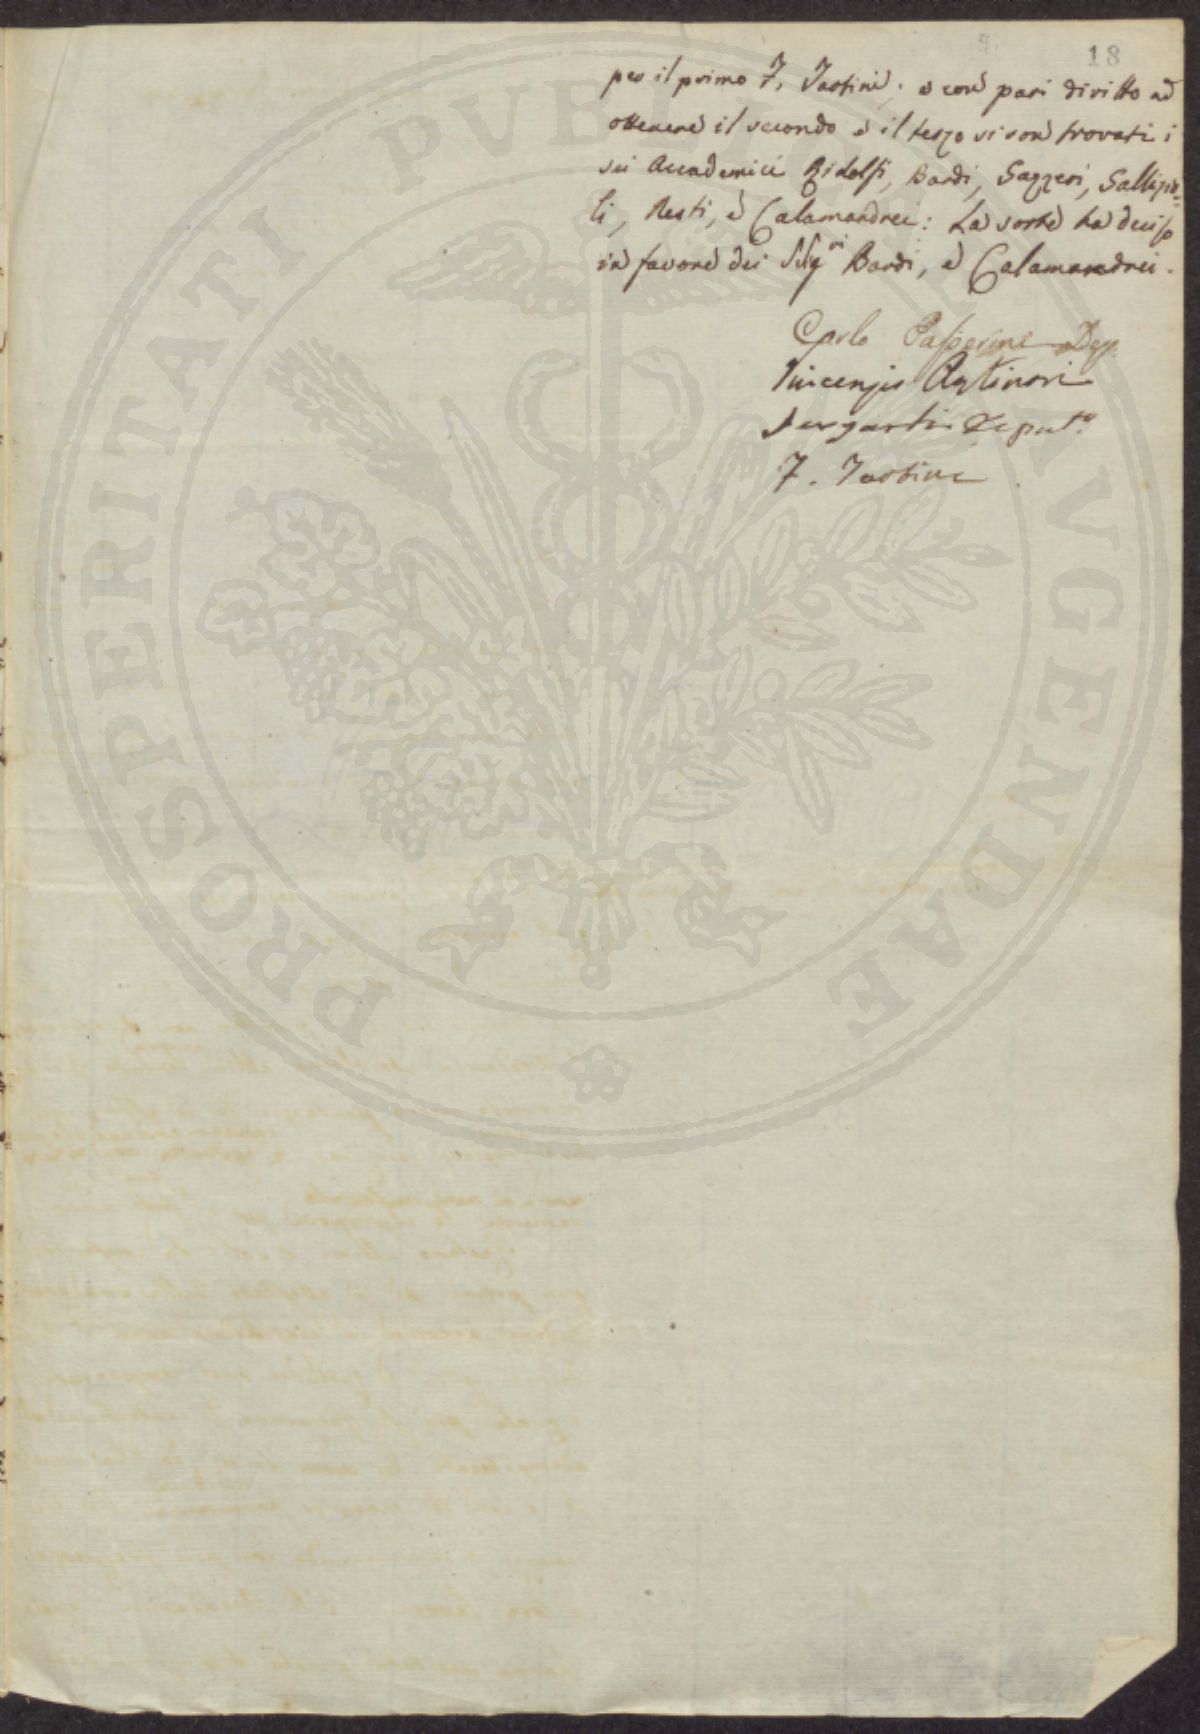 18
per il primo F. Tartini; e con pari diritto ad
ottenere il secondo e il terzo si son trovati i
sei Accademici Ridolfi, Bardi, Gazzeri, Gallizio=
li, Nesti, e Calamandrei: La sorte ha deciso
in favore dei Sigri Bardi, e Calamandrei.
Carlo Passerini Dep
Vincenzio Antinori
Deputo
F. Tartini
PROSPERITATI PVBLICAE AVGENDAE